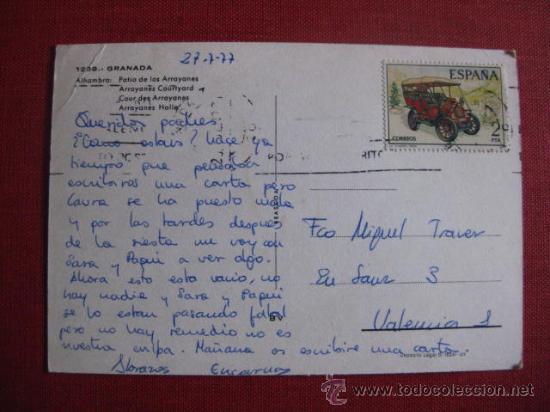 27-7-77
1239.- GRANADA
Alhambra: Patio de los Arrayanes
Arrayanes Courtyard
Cour des Arrayanes
Arrayanes Halle
ESPAÑA
2
PTA
CORREOS
Queridos padres:
¿Como estais? Hace ya
tiempo que pensaba
escribiros una carta pero
Laura se ha puesto mala
y por las tardes despues
de la siesta me voy con
Sara y Paqui a ver algo.
Ahora esto esta vacio, no
hay nadie y Sara y Paqui
se lo estan pasando fatal
pero no hay remedio no es
nuestra culpa. Mañana os escribire una carta.
Abrazos Encarnos
Fco Miguel Traver
En Sanz 3
Valencia 8
todocoleccion.net